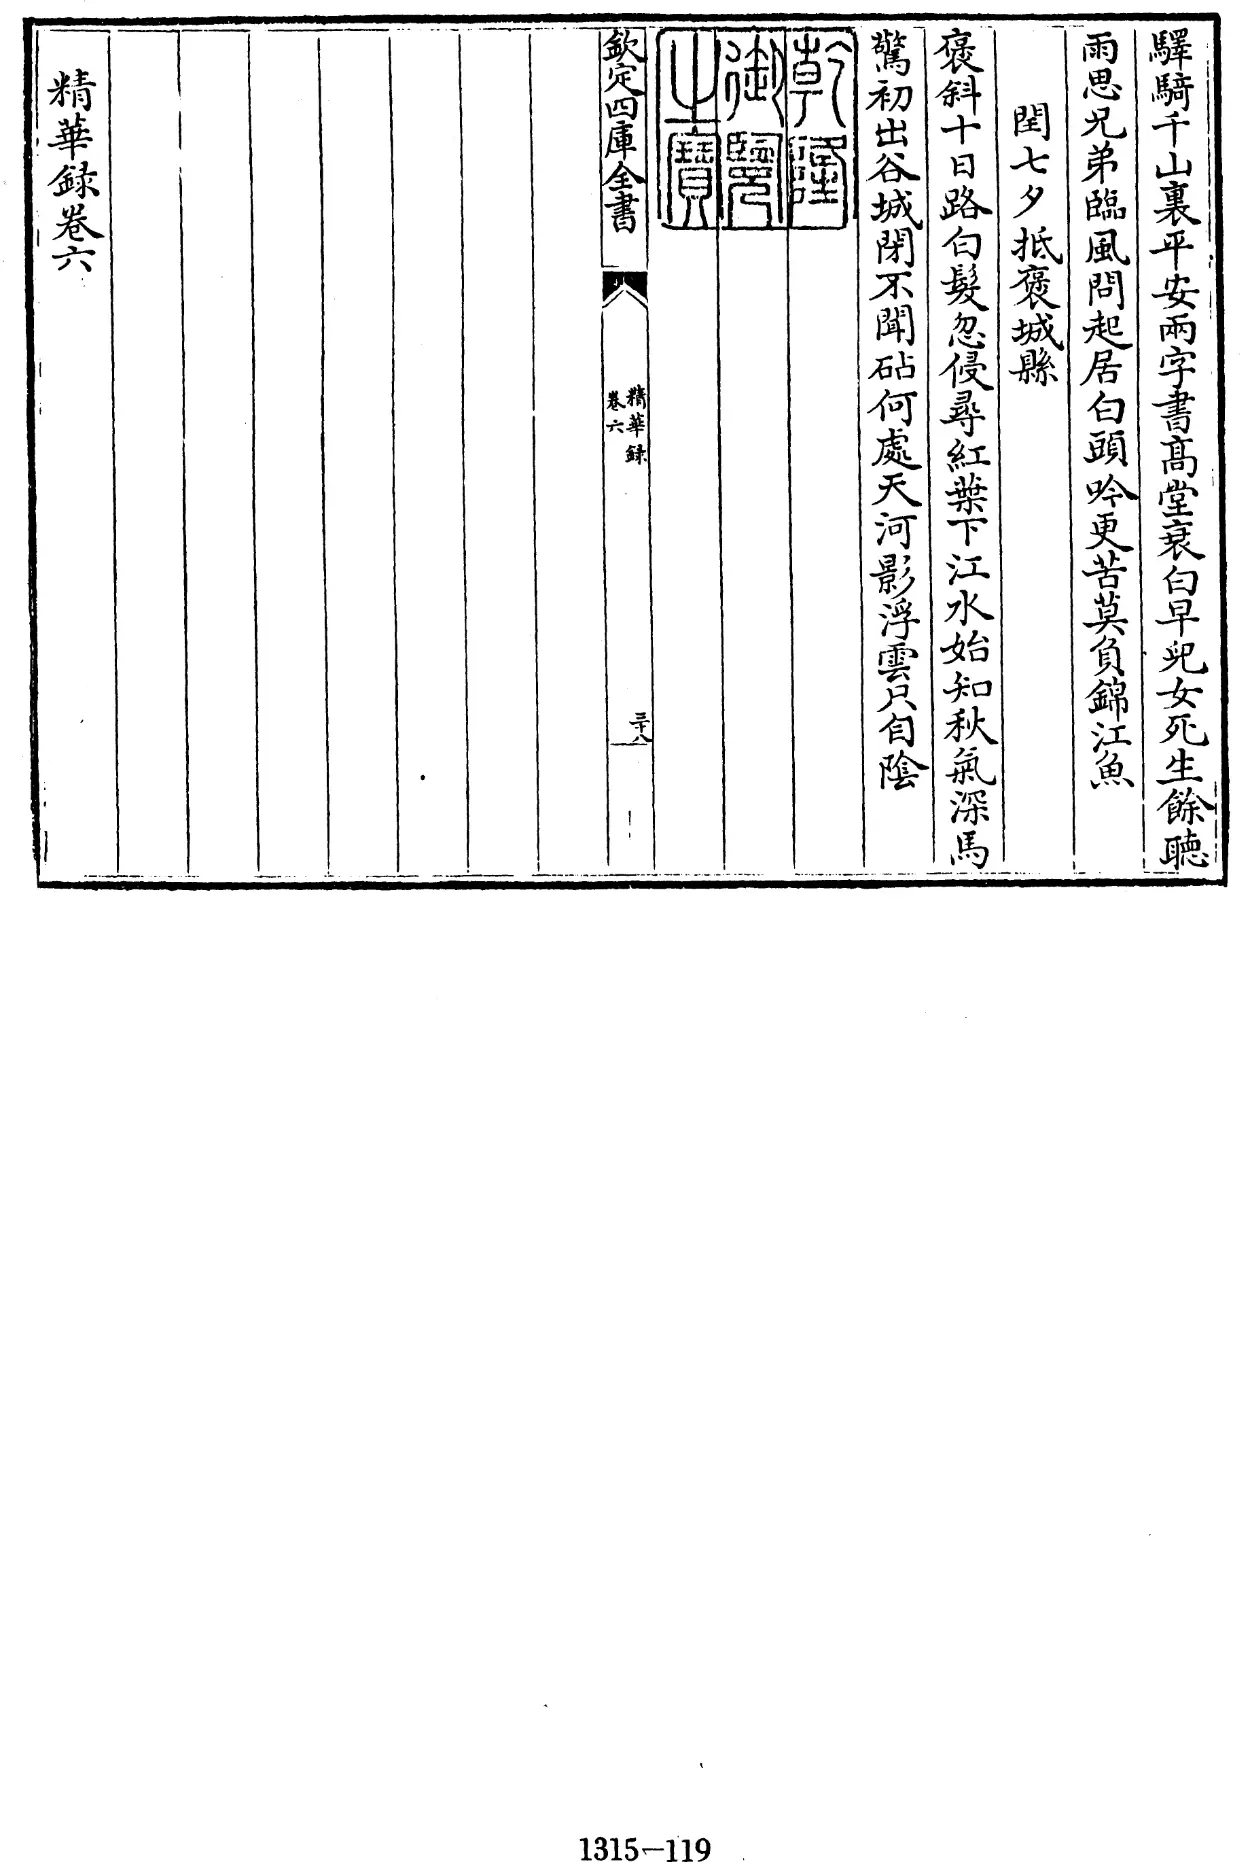 驛騎千山裏平安兩字書髙堂衰白早兒女死生餘聽
雨思兄弟臨風問起居白頭吟更苦莫負錦江魚
閏七夕抵褒城縣
褒斜十日路白髮忽侵尋紅葉下江水始知秋氣深馬
驚初出谷城閉不聞砧何處天河影浮雲只自陰
乾隆
御覽
之寶
欽定四庫全書
精華録
卷六
三十八
精華録卷六
1315-119